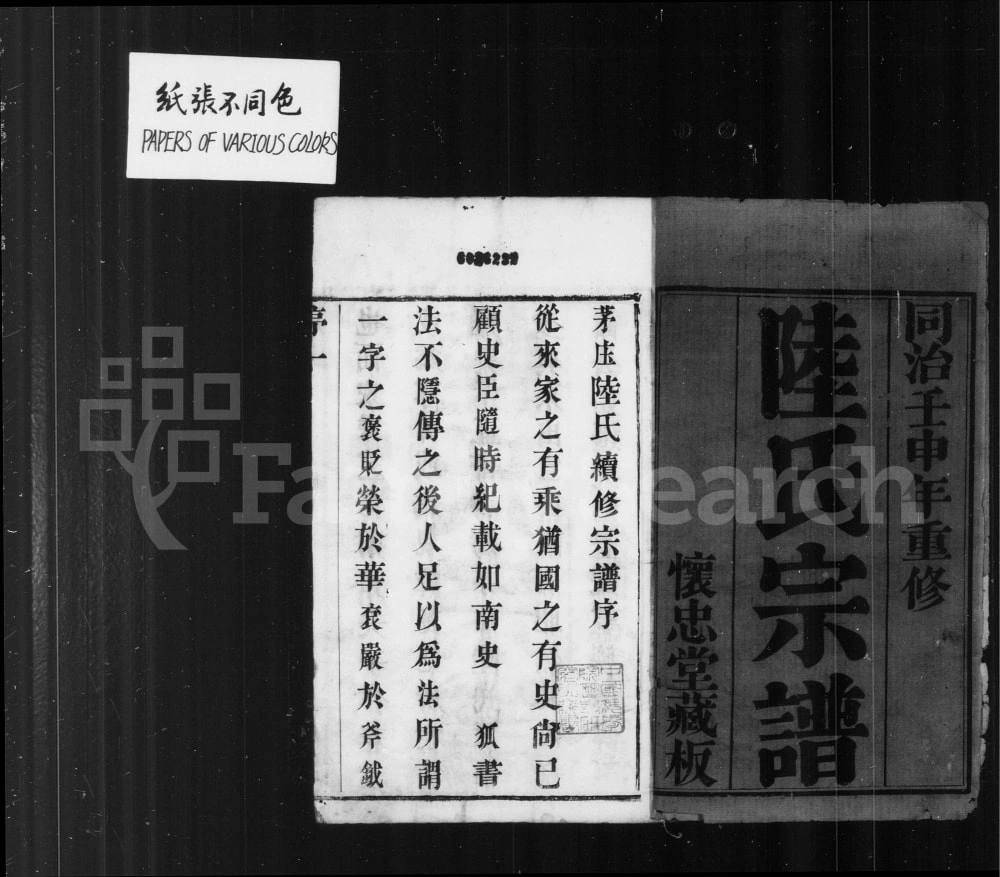 紙張不同色
PAPERS OF VARIOUS COLORS
同治壬申年重修
陸氏宗譜
懷忠堂藏板
6026239
茅庄陸氏續修宗譜序
從來家之有乘猶國之有史尙已
顧史臣隨時紀載如南史 狐書
法不隱傳之後人足以爲法所謂
一字之襃貶榮於華袞嚴於斧鉞
序一
FamilySearch